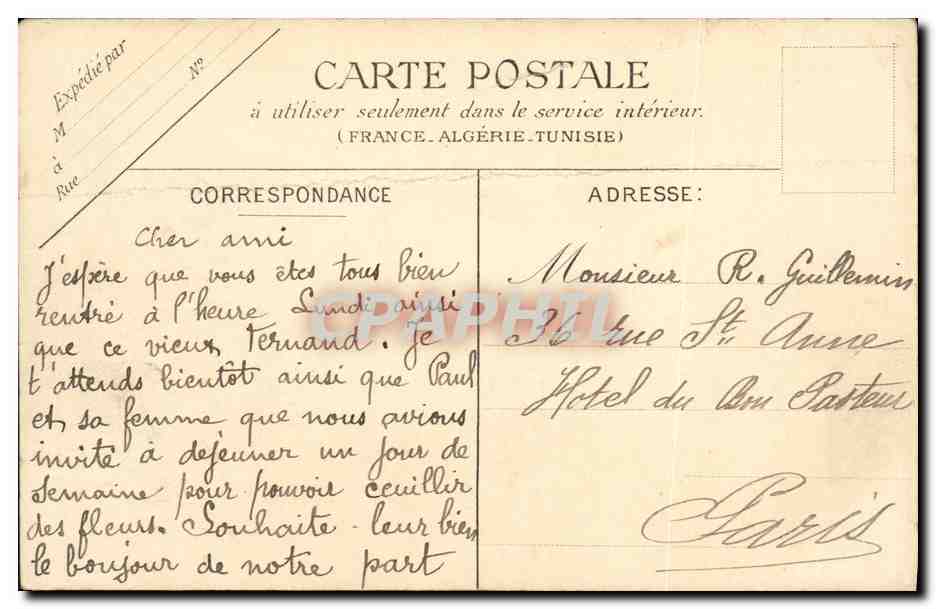 Expédié par
M
à
Rue
Nº
CARTE POSTALE
à utiliser seulement dans le service intérieur.
(FRANCE-ALGÉRIE-TUNISIE)
CORRESPONDANCE
Cher ami
J'espère que vous êtes tous bien
rentré à l'heure Lundi ainsi
que ce vieux Fernand. Je
t'attends bientôt ainsi que Paul
et sa femme que nous avions
invité à déjeuner un jour de
semaine pour pouvoir ceuillir
des fleurs. Souhaite-leur bien
le bonjour de notre part
ADRESSE:
Monsieur R. Guillemin
36 rue St. Anne
Hotel du Bon Pasteur
Paris
CPAPHIL